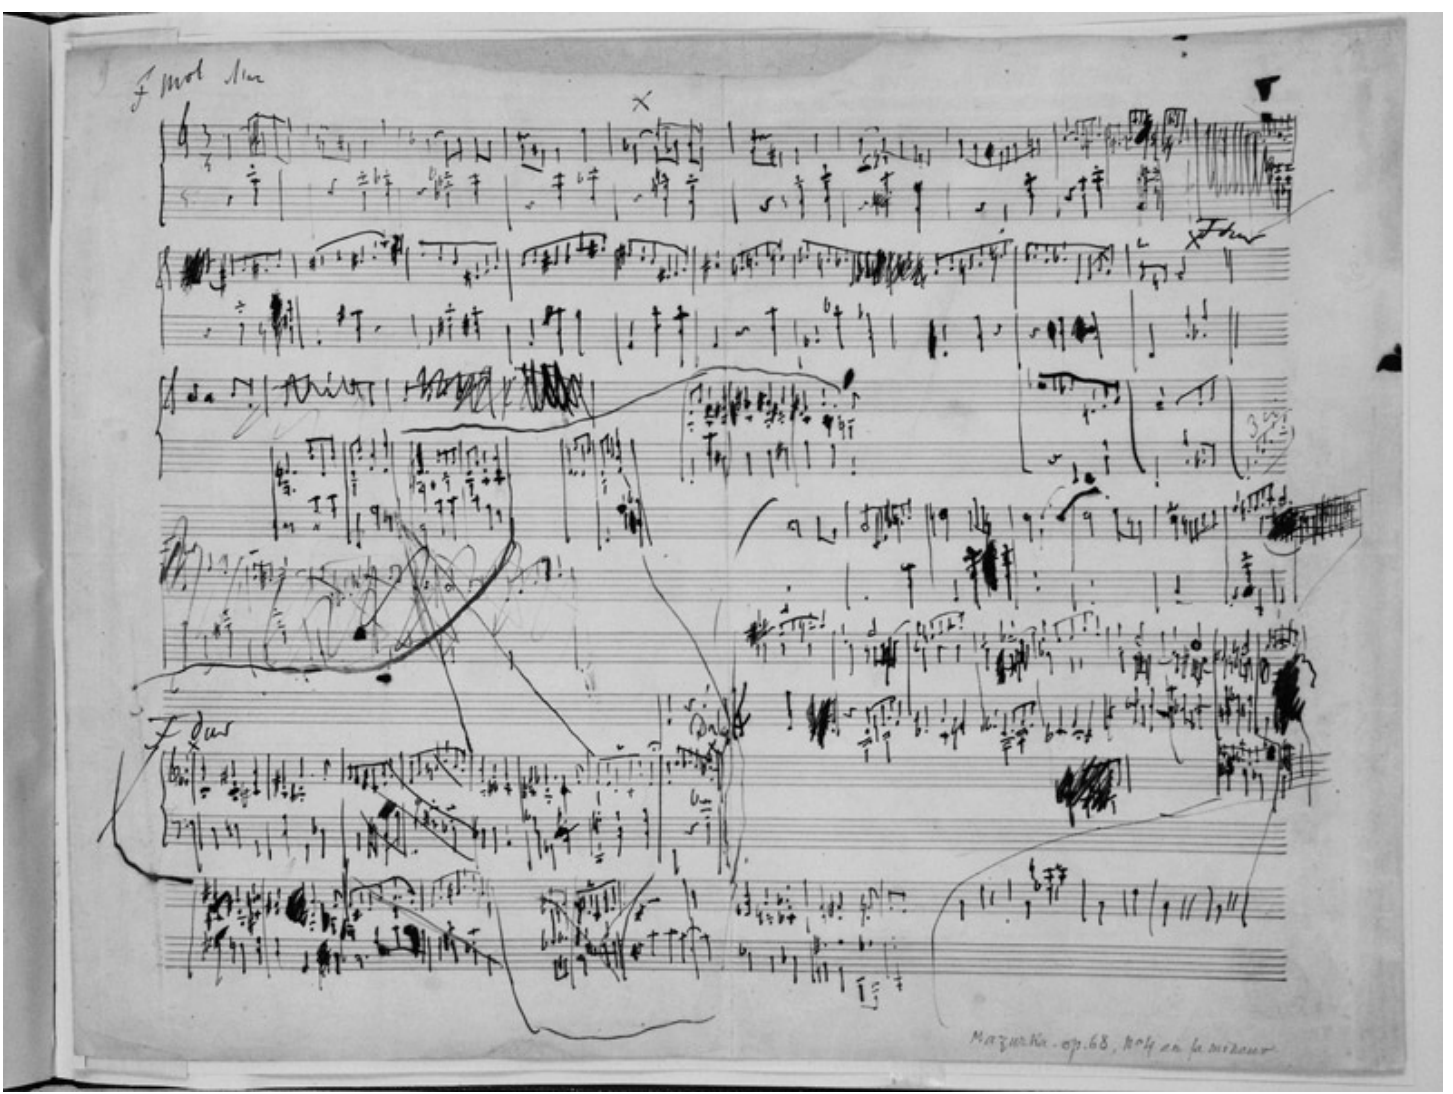 F mol
F dur
F dur
Mazurka - op. 68, n°4 en fa mineur